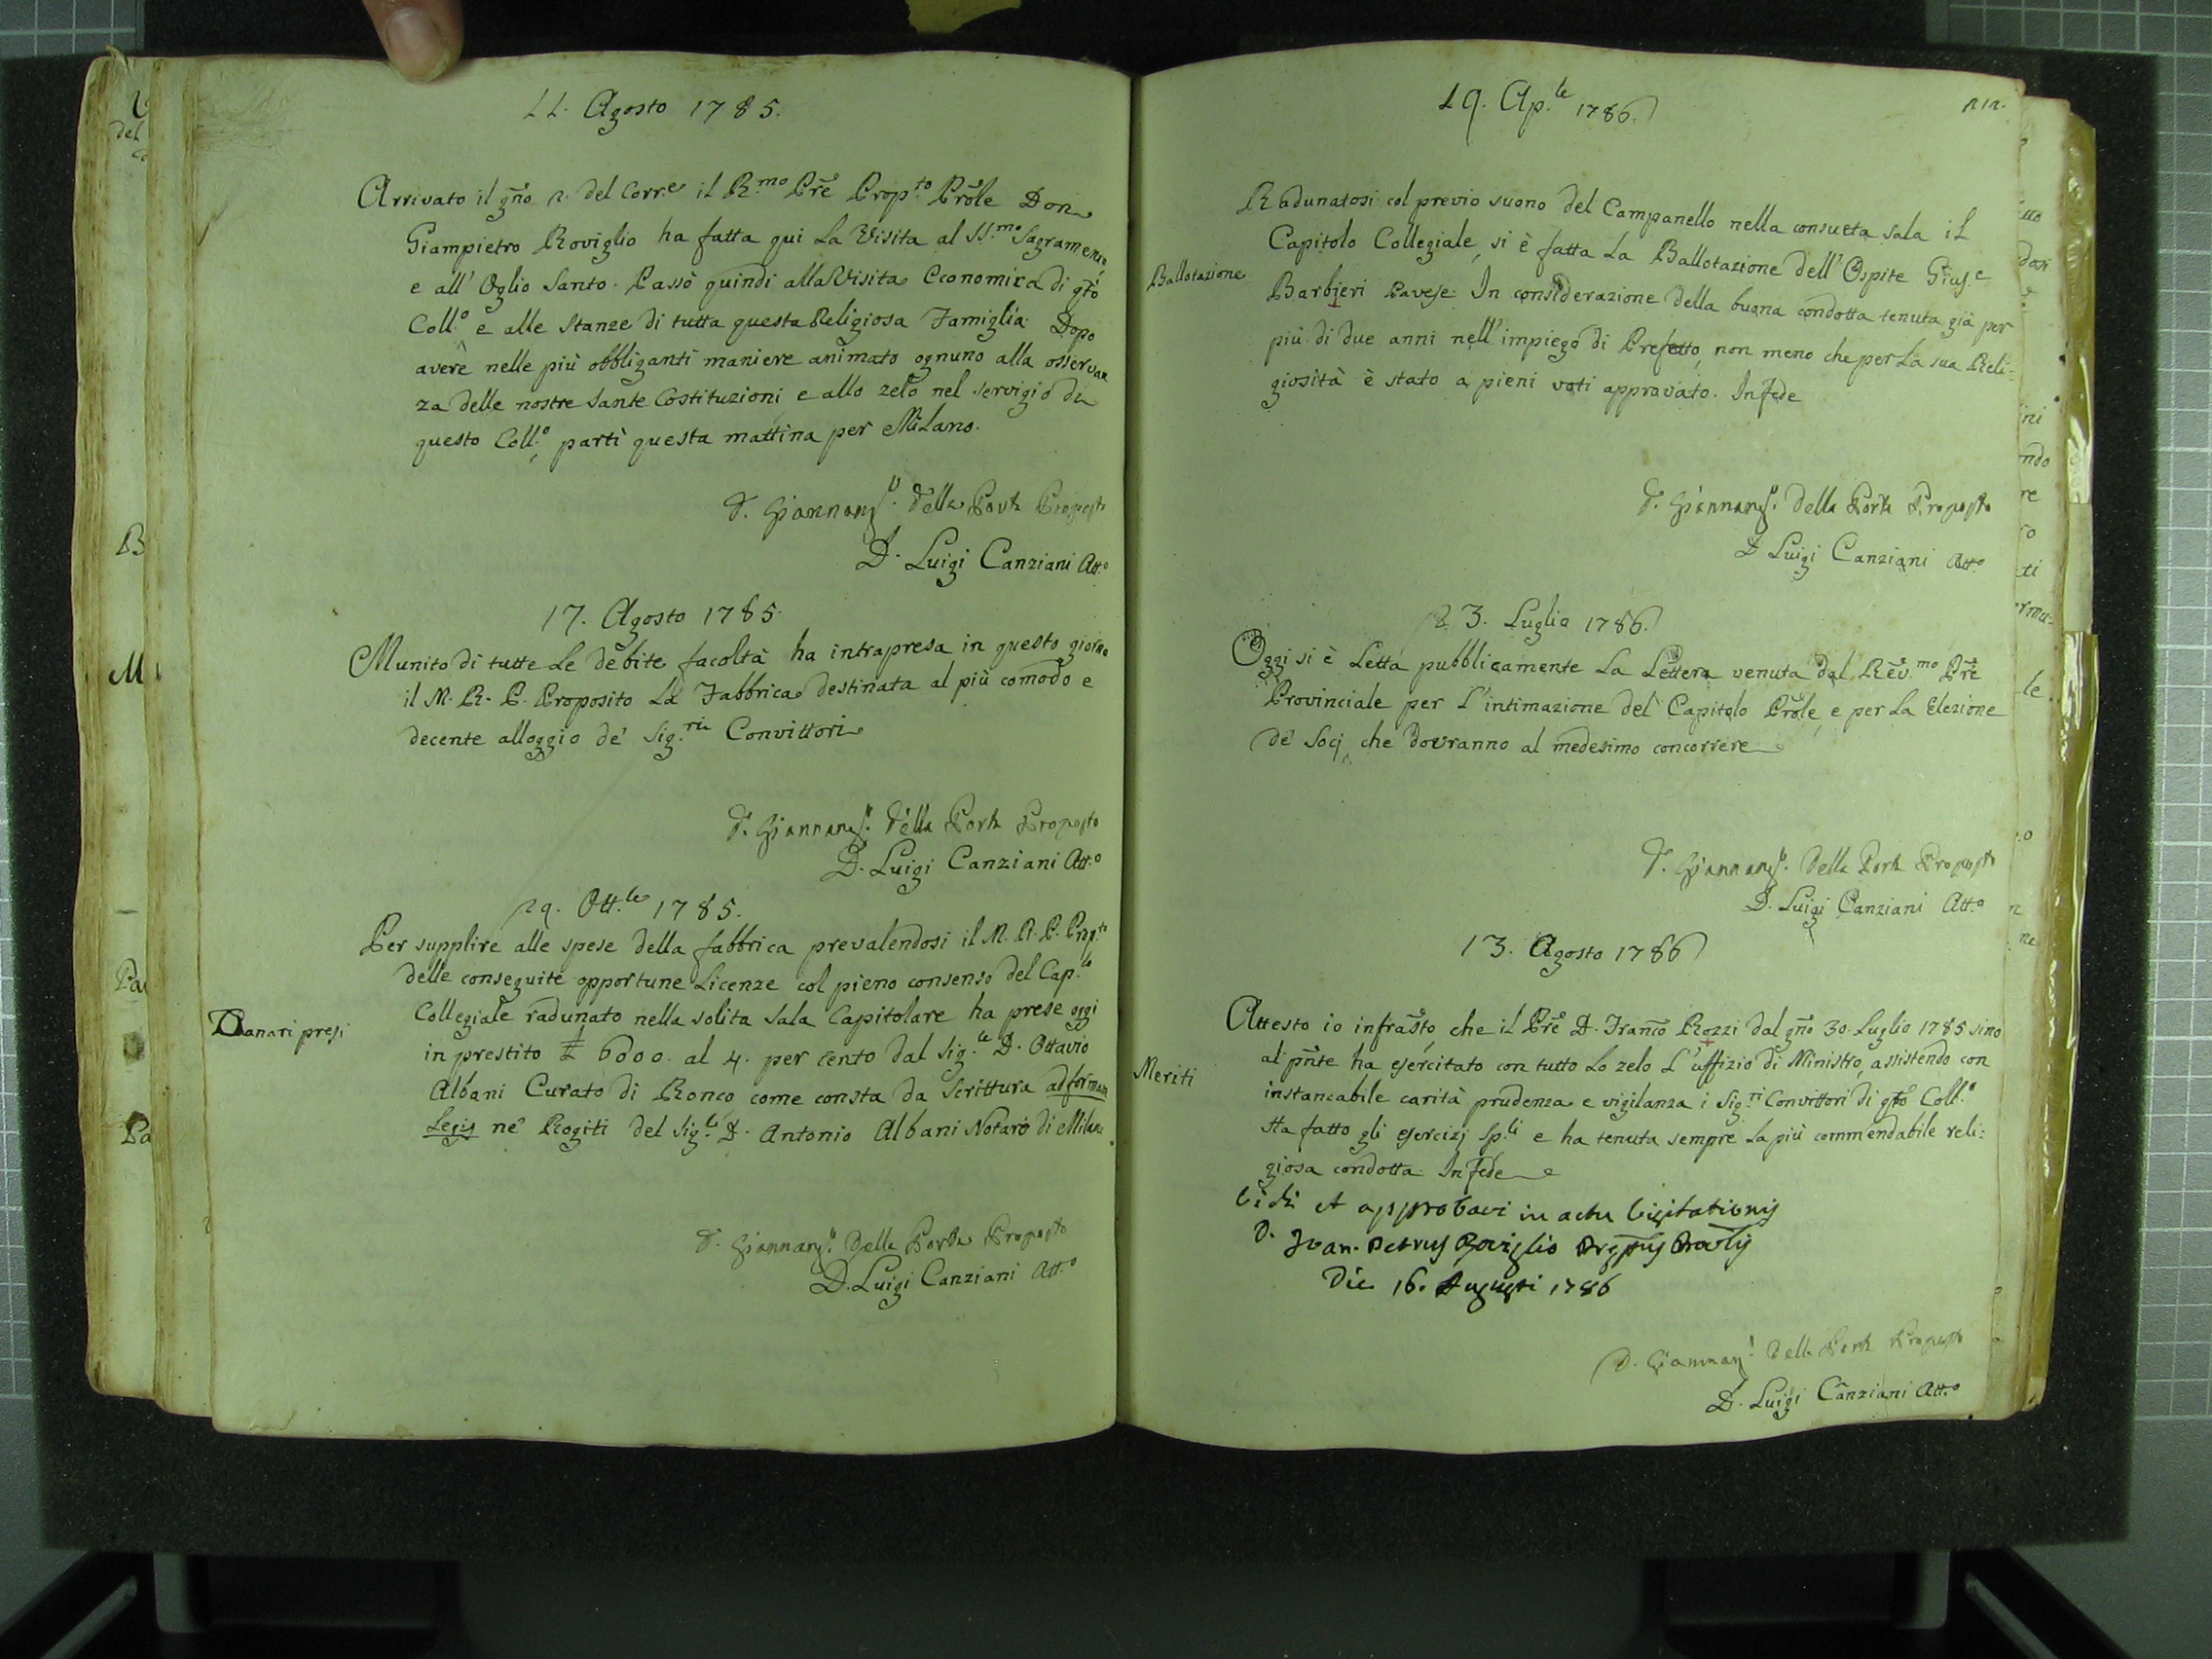 11. Agosto 1785.
Arrivato il gño 2. del Corr.e il R.mo Prẽ Prop.to Prõle Don
Giampietro Roviglio ha fatta qui la Visita al SS.mo Sagramento
e all' Oglio Santo. Passò quindi alla Visita Economica di qto
Coll.o e alle Stanze di tutta questa Religiosa Famiglia. Dopo
avere nelle più obbliganti maniere animato ognuno alla osservan
za delle nostre Sante Costituzioni e allo zelo nel servigio di
questo Coll.o, partì questa mattina per Milano.
Della Porta Proposto
D. Luigi Canziani Att.o
17. Agosto 1785.
Munito di tutte le debite facoltà ha intrapresa in questo giorno
il M. R. P. Proposito la Fabbrica destinata al più comodo e
decente alloggio de' Sig.ri Convittori
Della Porta Proposto
D. Luigi Canziani Att.o
29. Ott.le 1785.
Per supplire alle spese della fabbrica prevalendosi il M. R. P. Prop.to
delle conseguite opportune Licenze col pieno consenso del Cap.lo
Danari presi
Collegiale radunato nella solita sala Capitolare ha prese oggi
in prestito 6000. al 4. per cento dal Sig.le D. Ottavio
Albani Curato di Ronco come consta da Scrittura ad formam
Legis ne' Rogiti del Sig.le D. Antonio Albani Notaro di Milano
Della Porta Proposto
D. Luigi Canziani Att.o
19. Ap.le 1786.
212.
Radunatosi col previo suono del Campanello nella consueta sala il
Capitolo Collegiale, si è fatta la Ballotazione dell' Ospite Gius.e
Ballotazione
Barbieri Pavese. In considerazione della buona condotta tenuta già per
più di due anni nell' impiego di Prefetto, non meno che per la sua Reli=
giosità è stato a pieni voti approvato. In fede
Della Porta Proposto
D. Luigi Canziani Att.o
23. Luglio 1786.
Oggi si è Letta pubblicamente la Lettera venuta dal Rev.mo Prẽ
Provinciale per l'intimazione del Capitolo Prõle, e per la Elezione
de' Socj, che dovranno al medesimo concorrere
Della Porta Proposto
D. Luigi Canziani Att.o
13. Agosto 1786
Attesto io infrãsto, che il Prẽ D. Franco Rozzi dal gño 30. Luglio 1785 sino
al pñte ha esercitato con tutto lo zelo l'uffizio di Ministro, assistendo con
Meriti
instancabile carità prudenza e vigilanza i Sig.ri Convittori di qto Coll.o
Ha fatto gli esercizj Sp.li e ha tenuta sempre la più commendabile reli=
giosa condotta. In fede
Vidi et approbavi in actu Visitationis
D. Joan. Petrus Roviglio Prep̃tus Provlis
Die 16. Augusti 1786
Della Porta Proposto
D. Luigi Canziani Att.o